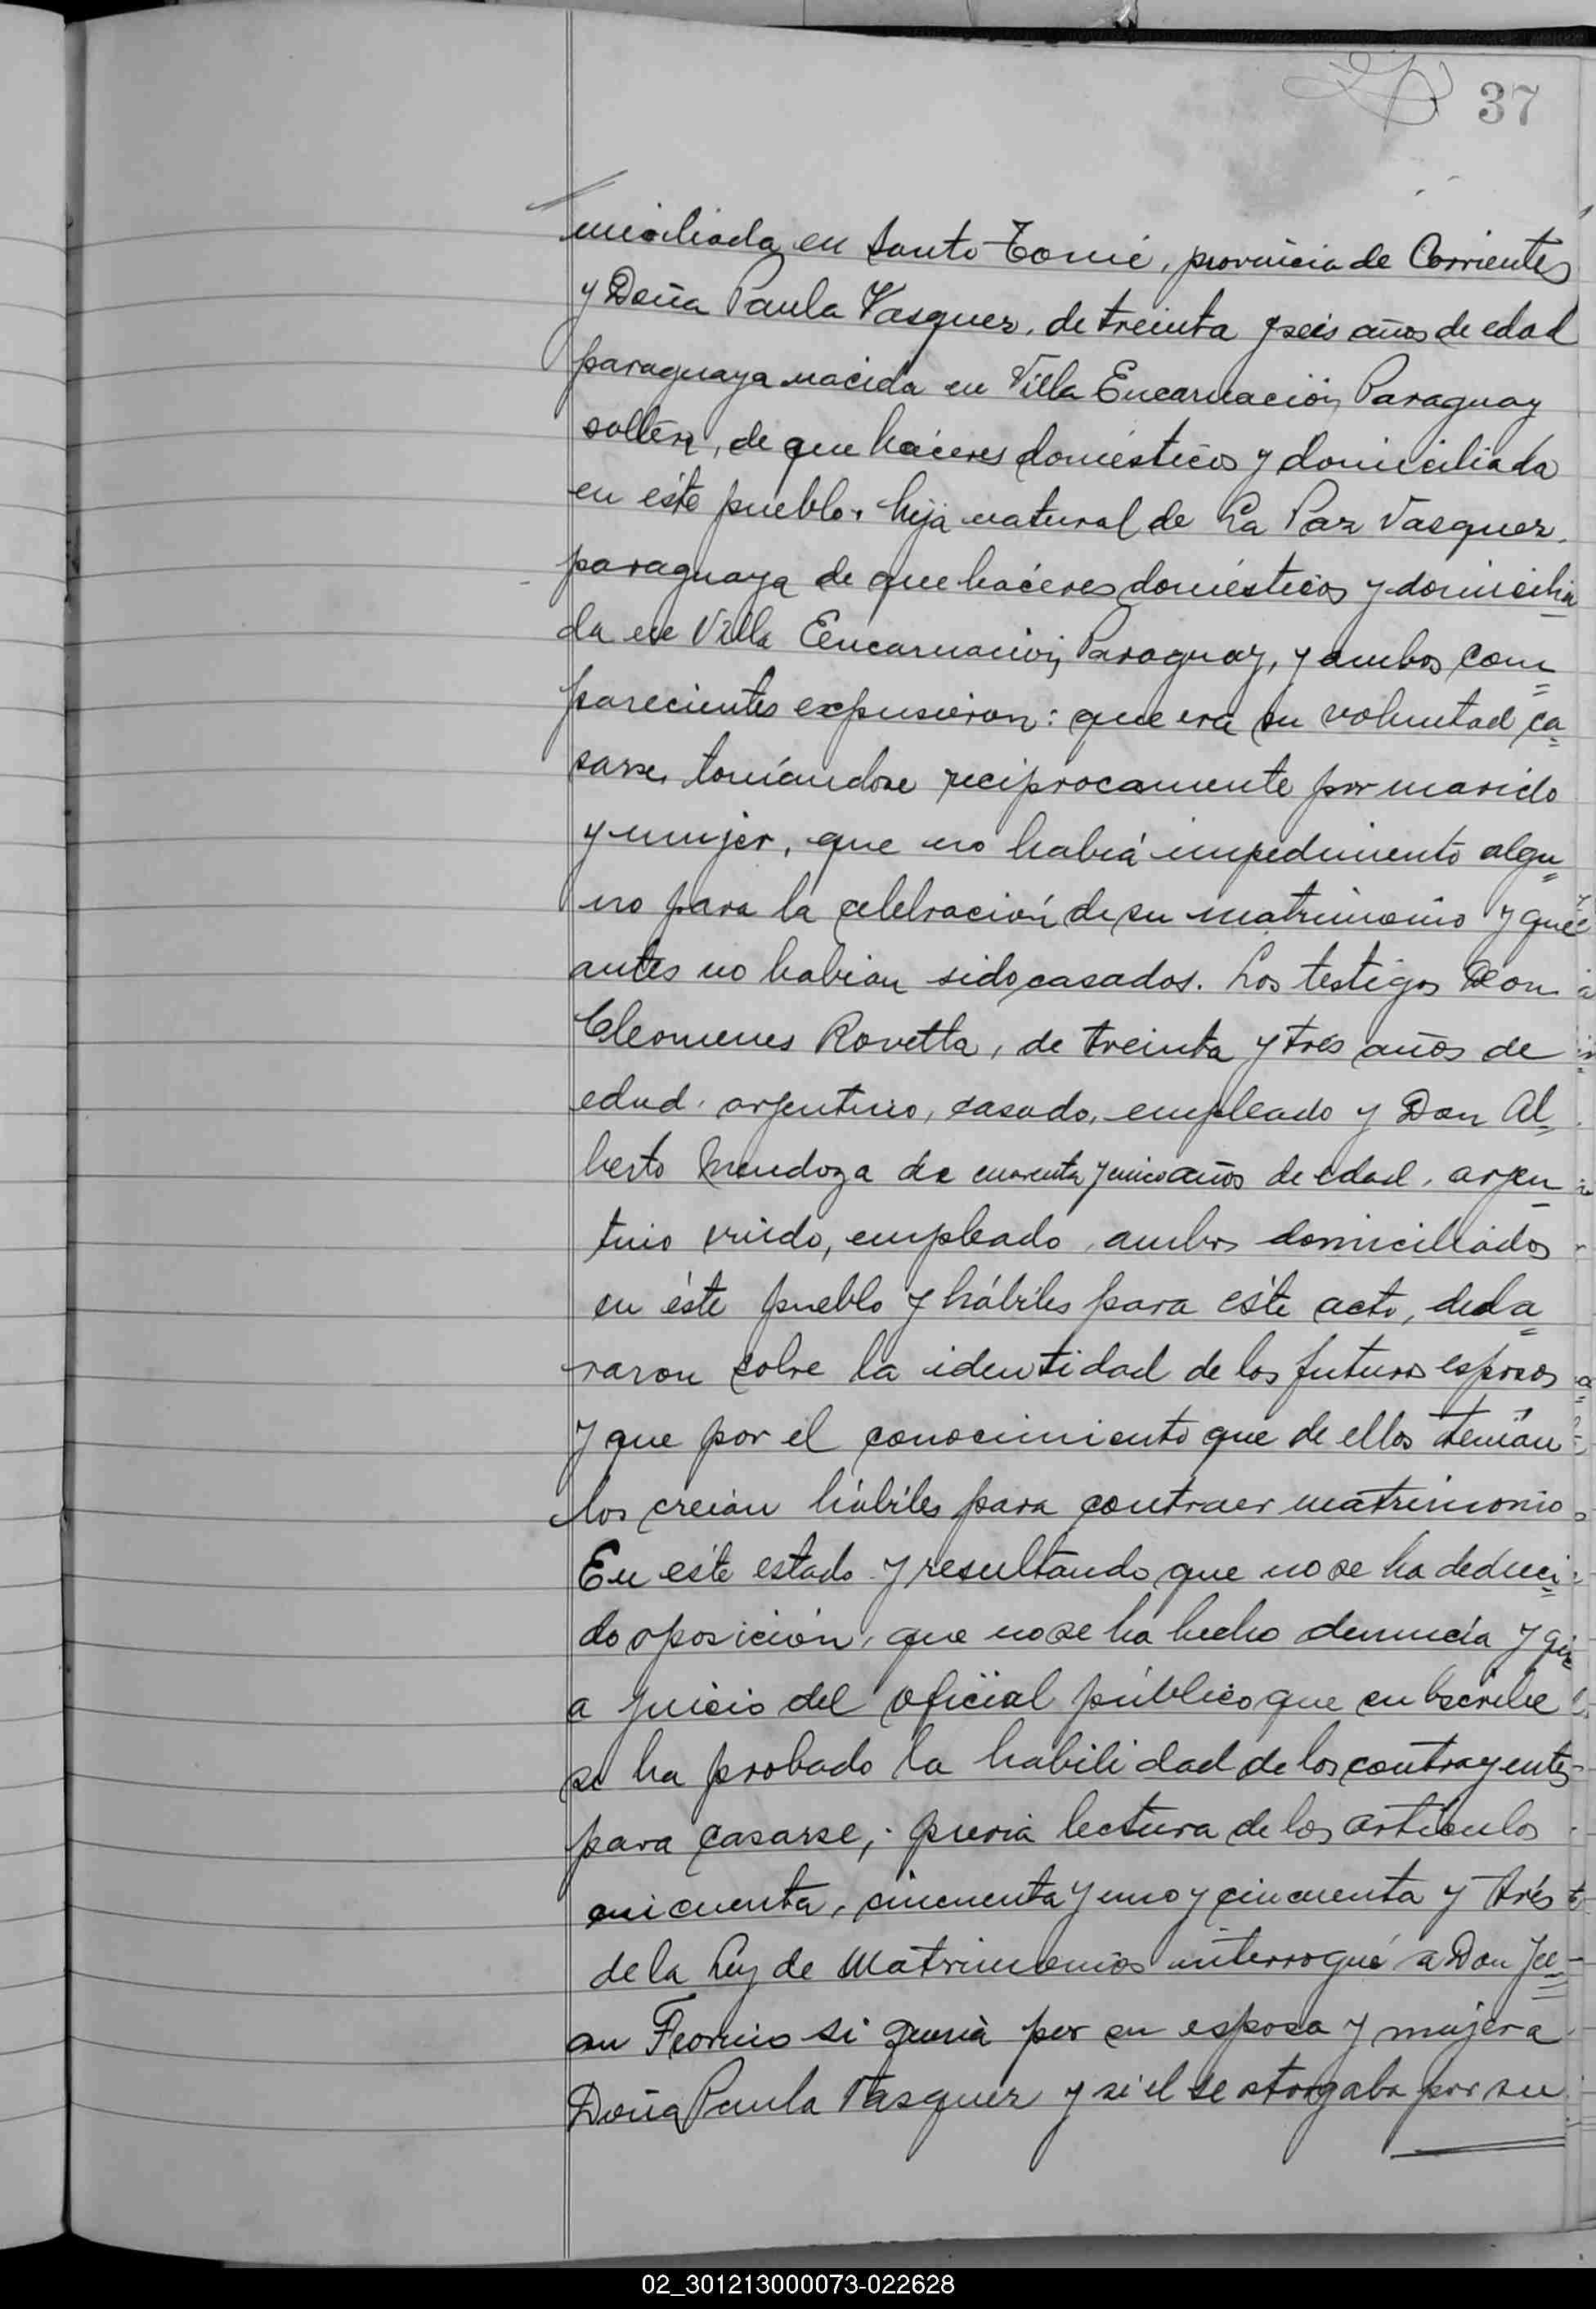 37
miciliada en Santo Tomé, provincia de Corrientes
y Doña Paula Vasquez, de treinta y seis años de edad
paraguaya nacida en Villa Encarnación, Paraguay
soltera, de que haceres domésticos y domiciliada
en éste pueblo, hija natural de La Paz Vasquez,
paraguaya de que haceres domésticos y domicilia
da en Villa Eencarnación, Paraguay, y ambos com=
parecientes expusieron: que era su voluntad ca=
sarse, tomándose reciprocamente por marido
y mujer, que no había impedimento algu=
no para la celebración de su matrimonio y que
antes no habían sido casados. Los testigos Don
Cleomenes Rovetta, de treinta y trés años de
edad, argentino, casado, empleado y Don Al=
berto Mendoza de cuarenta y cinco años de edad, argen=
tino viúdo, empleado, ambos domiciliados
en éste pueblo y hábiles para éste acto, decla=
raron sobre la identidad de los futuros esposos
y que por el conocimiento que de ellos tenían
los creían hábiles para contraer matrimonio
En éste estado y resultando que no se ha deduci=
do oposición, que no se ha hecho denuncia y que
a juicio del oficial público que subscribe
se ha probado la habilidad de los contrayentes
para casarse, previa lectura de los artículos
cincuenta, cincuenta y uno y cincuenta y trés
de la Ley de Matrimonios interrogué a Don Ju=
an si quería por su esposa y mujer a
Doña Paula Vasquez y si el se otorgaba por su
02_301213000073-022628